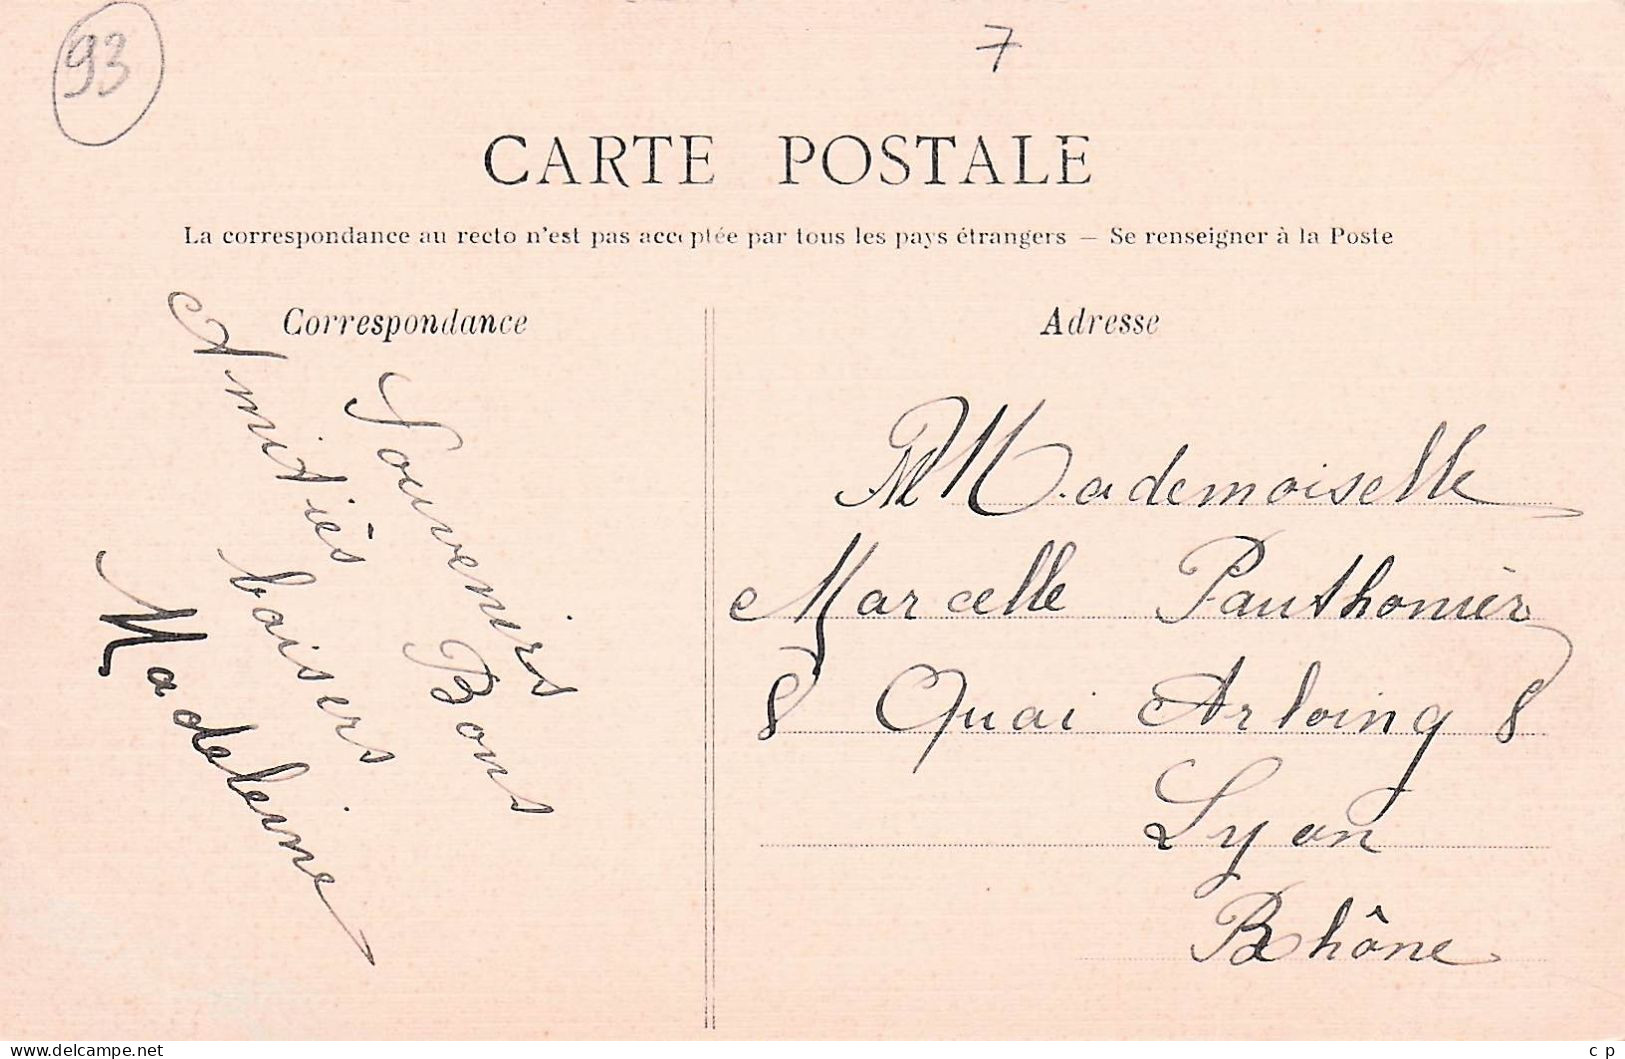 93
7
CARTE POSTALE
La correspondance au recto n'est pas acceptée par tous les pays étrangers — Se renseigner à la Poste
Correspondance
Souvenirs
Amitiès Bons
baisers
Madeleine
Adresse
Mademoiselle
Marcelle Pauthonnier
8 Quai Arloing 8
Lyon
Rhône
www.delcampe.net
c p